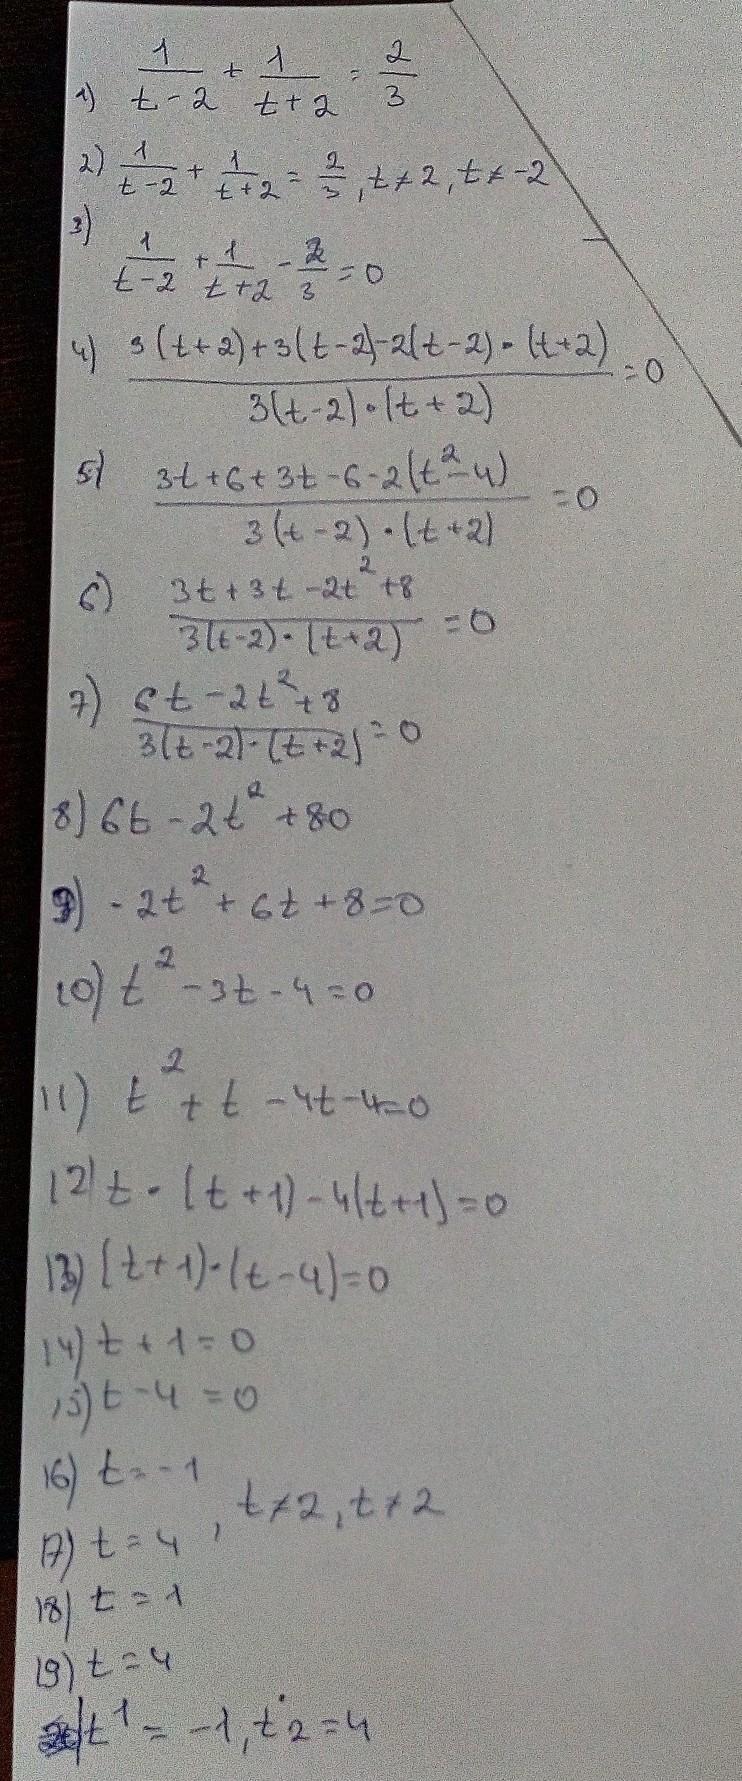 1) 1/(t-2) + 1/(t+2) = 2/3
2) 1/(t-2) + 1/(t+2) = 2/3, t≠2, t≠-2
3) 1/(t-2) + 1/(t+2) - 2/3 = 0
4) (3(t+2)+3(t-2)-2(t-2)·(t+2))/(3(t-2)·(t+2)) = 0
5) (3t+6+3t-6-2(t²-4))/(3(t-2)·(t+2)) = 0
6) (3t+3t-2t²+8)/(3(t-2)·(t+2)) = 0
7) (6t-2t²+8)/(3(t-2)·(t+2)) = 0
8) 6t-2t²+80
9) -2t²+6t+8=0
10) t²-3t-4=0
11) t²+t-4t-4=0
12) t·(t+1)-4(t+1)=0
13) (t+1)·(t-4)=0
14) t+1=0
15) t-4=0
16) t=-1
17) t=4, t≠2, t≠2
18) t=1
19) t=4
20) t¹=-1, t2=4